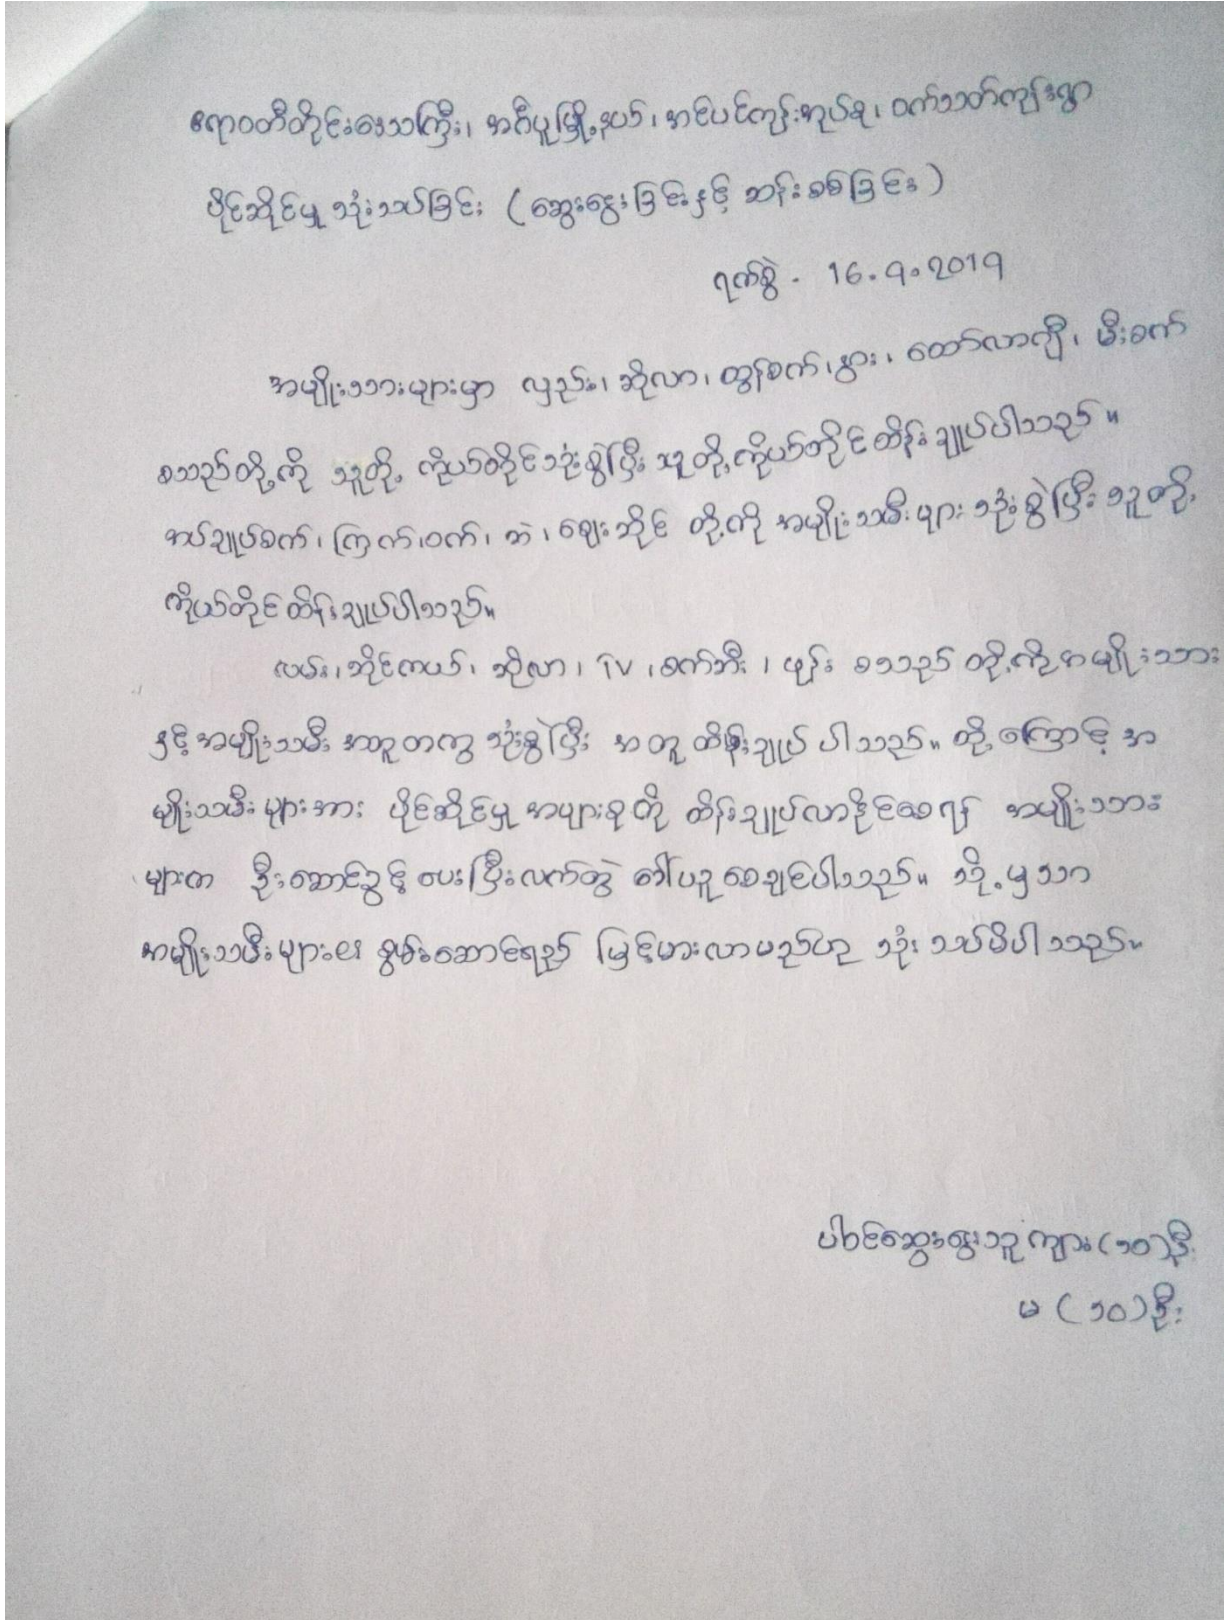 ဧရာဝတီတိုင်းဒေသကြီး၊ အင်္ဂပူမြို့နယ်၊ အင်ပင်ကုန်းအုပ်စု၊ ဝက်သတ်ကုန်းရွာ
ပိုင်ဆိုင်မှု သုံးသပ်ခြင်း (ဆွေးနွေးခြင်းနှင့် ဆန်းစစ်ခြင်း)
ရက်စွဲ - 16.9.2019
အမျိုးသားများမှာ လှည်း၊ ဆိုလာ၊ ထွန်စက်၊ နွား၊ ထော်လာဂျီ၊ မီးစက်
စသည်တို့ကို သူတို့ ကိုယ်တိုင်သုံးစွဲပြီး သူတို့ကိုယ်တိုင် ထိန်းချုပ်ပါသည်။
အပ်ချုပ်စက်၊ ကြက်၊ ဝက်၊ ဘဲ၊ ဈေးဆိုင် တို့ကို အမျိုးသမီးများ သုံးစွဲပြီး သူတို့
ကိုယ်တိုင်ထိန်းချုပ်ပါသည်။
လမ်း၊ ဆိုင်ကယ်၊ ဆိုလာ၊ TV ၊ စက်ဘီး ၊ ဖုန်း စသည် တို့ကို အမျိုးသား
နှင့် အမျိုးသမီး အတူတကွ သုံးစွဲပြီး အတူ ထိန်းချုပ် ပါသည်။ တို့ကြောင့် အ
မျိုးသမီးများအား ပိုင်ဆိုင်မှု အများစုကို ထိန်းချုပ်လာနိုင်စေရန် အမျိုးသား
များက ဦးဆောင်ခွင့် ပေးပြီး လက်တွဲ ခေါ်ယူစေချင်ပါသည်။ သို့မှသာ
အမျိုးသမီးများ၏ စွမ်းဆောင်ရည် မြင့်မားလာမည်ဟု သုံးသပ်မိပါသည်။
ပါဝင်ဆွေးနွေးသူ ကျား (၁၀) ဦး
မ (၁၀) ဦး